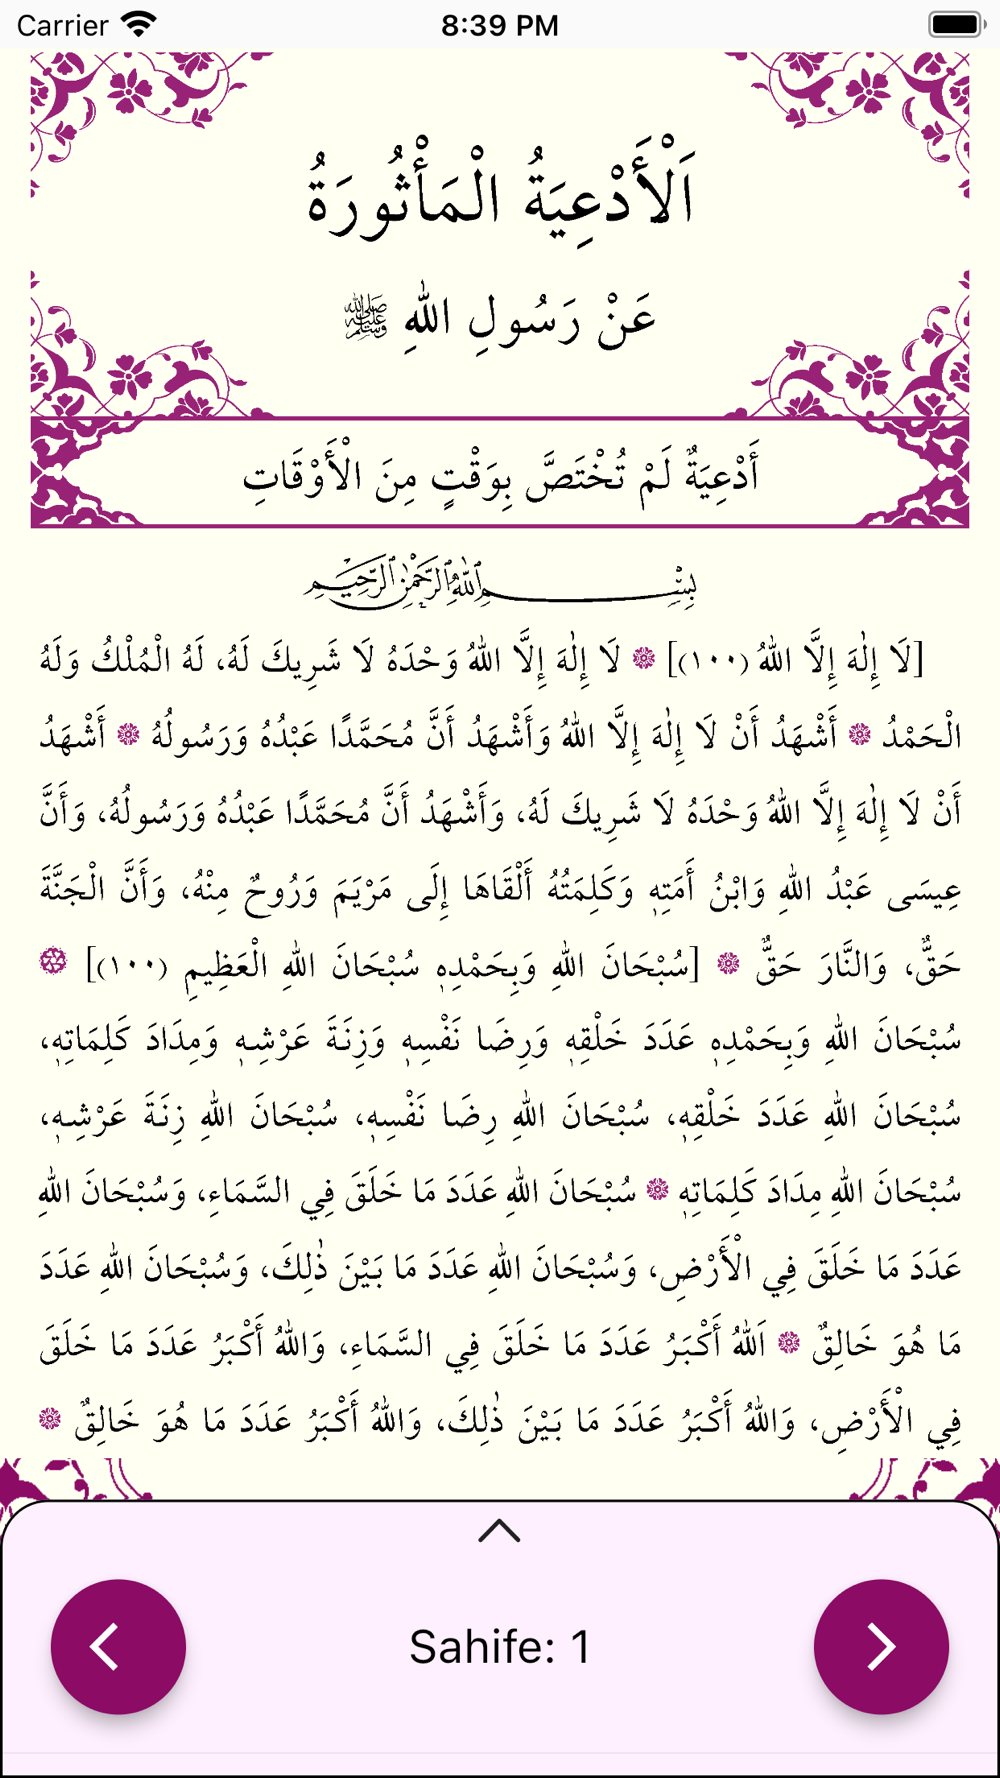 Carrier 8:39 PM
اَلْأَدْعِيَةُ الْمَأْثُورَةُ
عَنْ رَسُولِ اللهِ ﷺ
أَدْعِيَةٌ لَمْ تُخْتَصَّ بِوَقْتٍ مِنَ الْأَوْقَاتِ
بِسْمِ اللهِ الرَّحْمٰنِ الرَّحِيمِ
[لَا إِلٰهَ إِلَّا اللهُ (١٠٠)] ۞ لَا إِلٰهَ إِلَّا اللهُ وَحْدَهُ لَا شَرِيكَ لَهُ، لَهُ الْمُلْكُ وَلَهُ
الْحَمْدُ ۞ أَشْهَدُ أَنْ لَا إِلٰهَ إِلَّا اللهُ وَأَشْهَدُ أَنَّ مُحَمَّدًا عَبْدُهُ وَرَسُولُهُ ۞ أَشْهَدُ
أَنْ لَا إِلٰهَ إِلَّا اللهُ وَحْدَهُ لَا شَرِيكَ لَهُ، وَأَشْهَدُ أَنَّ مُحَمَّدًا عَبْدُهُ وَرَسُولُهُ، وَأَنَّ
عِيسَى عَبْدُ اللهِ وَابْنُ أَمَتِهِ وَكَلِمَتُهُ أَلْقَاهَا إِلَى مَرْيَمَ وَرُوحٌ مِنْهُ، وَأَنَّ الْجَنَّةَ
حَقٌّ، وَالنَّارَ حَقٌّ ۞ [سُبْحَانَ اللهِ وَبِحَمْدِهِ سُبْحَانَ اللهِ الْعَظِيمِ (١٠٠)] ۞
سُبْحَانَ اللهِ وَبِحَمْدِهِ عَدَدَ خَلْقِهِ وَرِضَا نَفْسِهِ وَزِنَةَ عَرْشِهِ وَمِدَادَ كَلِمَاتِهِ،
سُبْحَانَ اللهِ عَدَدَ خَلْقِهِ، سُبْحَانَ اللهِ رِضَا نَفْسِهِ، سُبْحَانَ اللهِ زِنَةَ عَرْشِهِ،
سُبْحَانَ اللهِ مِدَادَ كَلِمَاتِهِ ۞ سُبْحَانَ اللهِ عَدَدَ مَا خَلَقَ فِي السَّمَاءِ، وَسُبْحَانَ اللهِ
عَدَدَ مَا خَلَقَ فِي الْأَرْضِ، وَسُبْحَانَ اللهِ عَدَدَ مَا بَيْنَ ذٰلِكَ، وَسُبْحَانَ اللهِ عَدَدَ
مَا هُوَ خَالِقٌ ۞ اَللهُ أَكْبَرُ عَدَدَ مَا خَلَقَ فِي السَّمَاءِ، وَاللهُ أَكْبَرُ عَدَدَ مَا خَلَقَ
فِي الْأَرْضِ، وَاللهُ أَكْبَرُ عَدَدَ مَا بَيْنَ ذٰلِكَ، وَاللهُ أَكْبَرُ عَدَدَ مَا هُوَ خَالِقٌ ۞
Sahife: 1